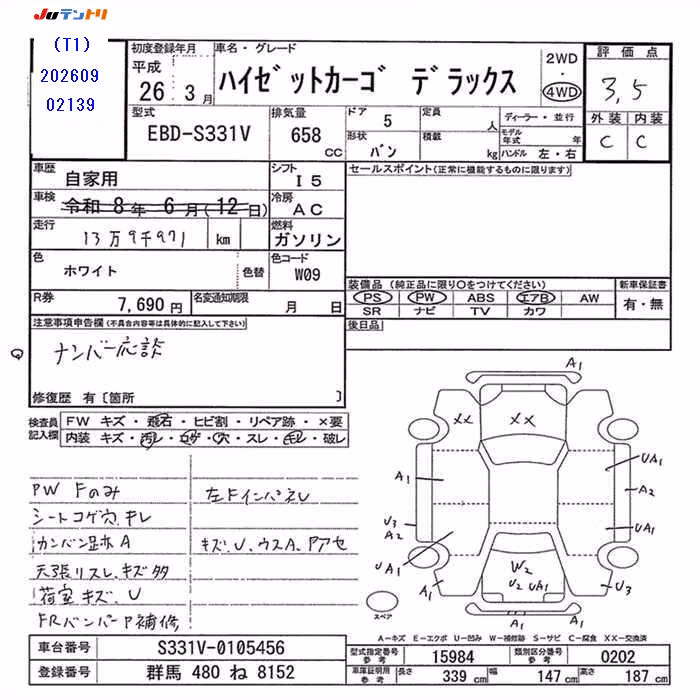 JUテントリ
(T1)
202609
02139
初度登録年月
平成
26 年 3 月
車名・グレード
ハイゼットカーゴ デラックス
2WD
・
4WD
評価点
3,5
外装 内装
C C
型式
EBD-S331V
排気量
658
CC
ドア
5
定員
人
形状
バン
積載
kg
ディーラー・並行
モデル年式 年
ハンドル 左・右
車歴
自家用
シフト
I5
セールスポイント(正常に機能するものに限ります)
車検
令和 8年 6月(12日)
冷房
AC
走行
13万9千971
km
燃料
ガソリン
色
ホワイト
色替
色コード
W09
装備品 (純正品に限り○をつけてください)
新車保証書
PS PW ABS エアB AW
有・無
SR ナビ TV カワ
R券
7,690 円
名変通知期限
月 日
後日品
注意事項申告欄(不具合内容等は具体的に記入して下さい)
ナンバー応談
修復歴 有〔箇所 〕
検査員
記入欄
FW キズ・飛石・ヒビ割・リペア跡・×要
内装 キズ・汚レ・コゲ・穴・スレ・モレ・破レ
PW Fのみ
左FインパネU
シートコゲ穴、キレ
カンバン跡A
キズ、U、ウスA、Pアセ
天張リスレ、キズ多
荷室キズ、U
FRバンパーP補修、
A1
XX XX
UA1
A1
A2
U3
A2
UA1
UA1
W2
U2 UA1
A1
U3
A1
スペア
A-キズ E-エクボ U-凹み W-補修跡 S-サビ C-腐食 XX-交換済
車台番号
S331V-0105456
登録番号
群馬 480 ね 8152
型式指定番号
参考
15984
類別区分番号
参考
0202
車庫証明用
参考
長さ
339 cm
幅
147 cm
高さ
187 cm